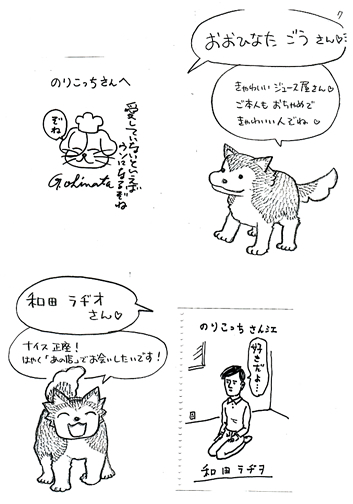 おおひなた ごう さん♡
きゃわいい ジュース屋さん♡
ご本人も おちゃめで
きゃわいい人でね♡
のりこっちさんへ
ぞね
愛していないといえば
ウソになるぞね
G.ohinata
和田 ラヂオ
さん♡
ナイス 正座!
はやく「あの店」でお会いしたいです!
のりこっち さん江
好きだよ…
和田 ラヂヲ